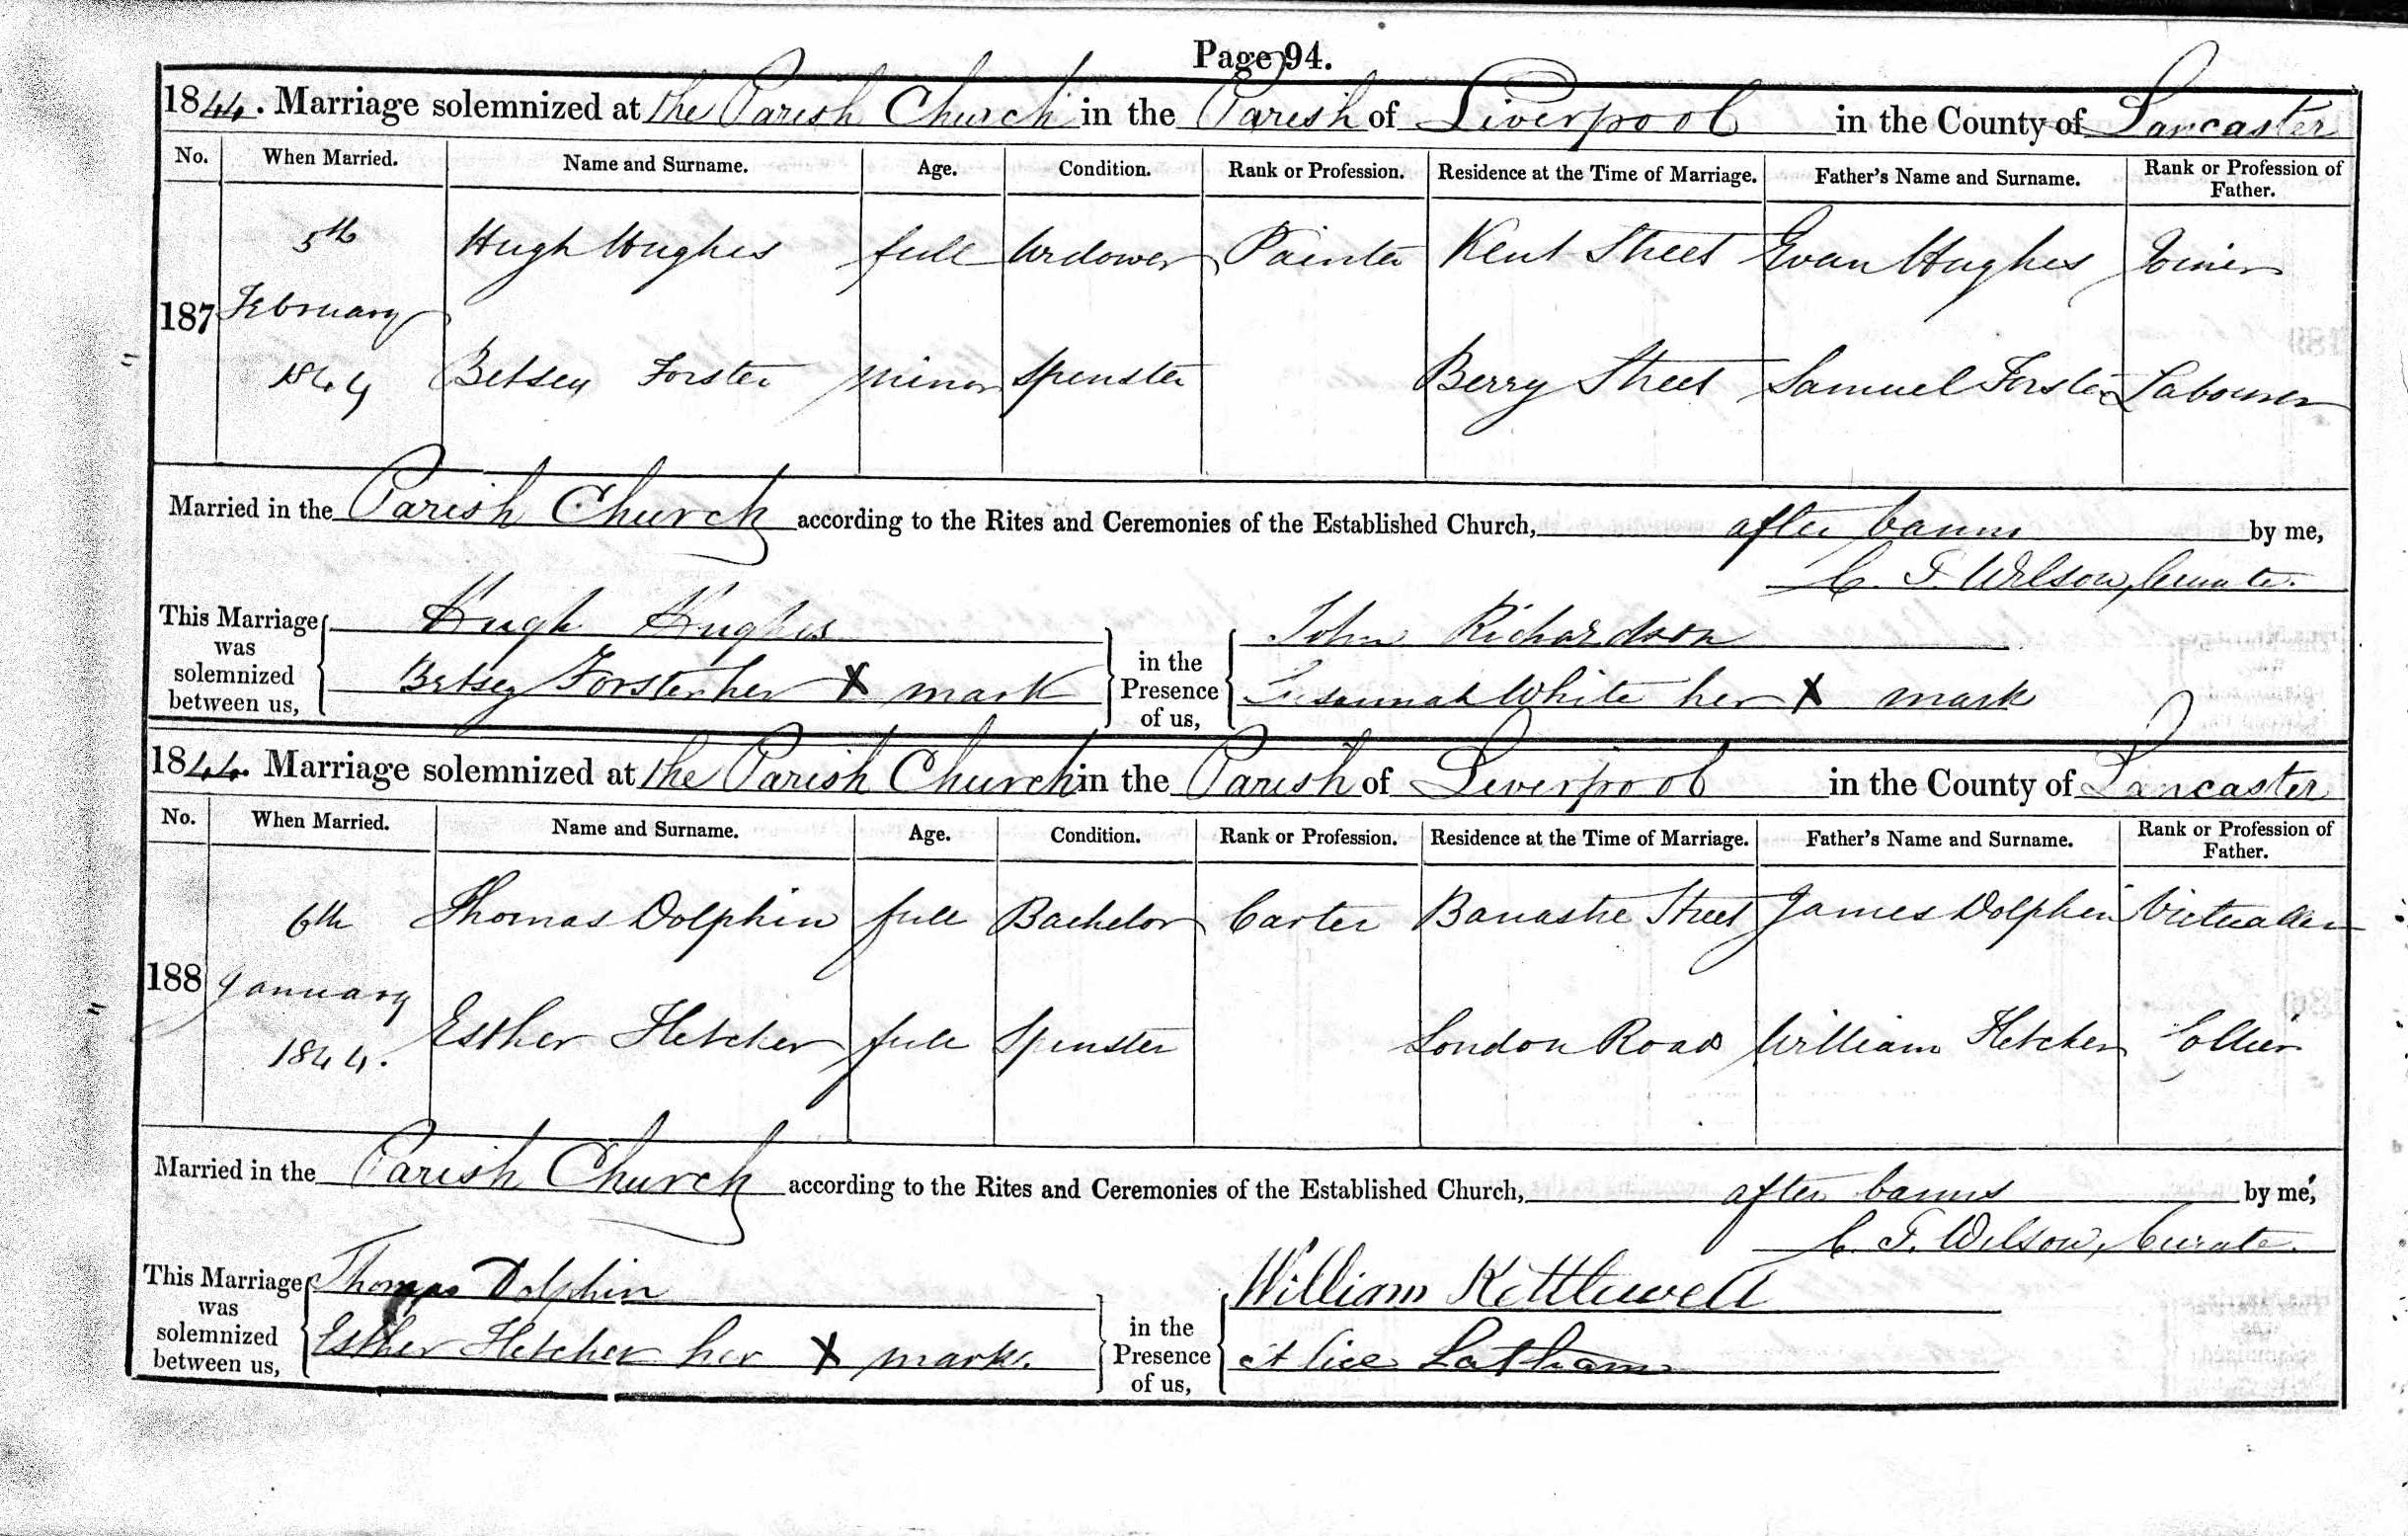 Page 94.
1844. Marriage solemnized at the Parish Church in the Parish of Liverpool in the County of Lancaster
No. When Married. Name and Surname. Age. Condition. Rank or Profession. Residence at the Time of Marriage. Father's Name and Surname. Rank or Profession of Father.
5th Hugh Hughes full Widower Painter Kent Street Evan Hughes Joiner
187 February
1844 Betsey Forster minor Spinster Berry Street Samuel Forster Labourer
Married in the Parish Church according to the Rites and Ceremonies of the Established Church, after banns by me,
C. T. Wilson, Curate.
This Marriage was solemnized between us, Hugh Hughes in the Presence of us, John Richardson
Betsey Forster her X mark Susannah White her X mark
1844. Marriage solemnized at the Parish Church in the Parish of Liverpool in the County of Lancaster
No. When Married. Name and Surname. Age. Condition. Rank or Profession. Residence at the Time of Marriage. Father's Name and Surname. Rank or Profession of Father.
6th Thomas Dolphin full Bachelor Carter Banastre Street James Dolphin Victualler
188 January
1844. Esther Fletcher full Spinster London Road William Fletcher Collier
Married in the Parish Church according to the Rites and Ceremonies of the Established Church, after banns by me,
C. T. Wilson, Curate.
This Marriage was solemnized between us, Thomas Dolphin in the Presence of us, William Kettlewell
Esther Fletcher her X mark. Alice Latham